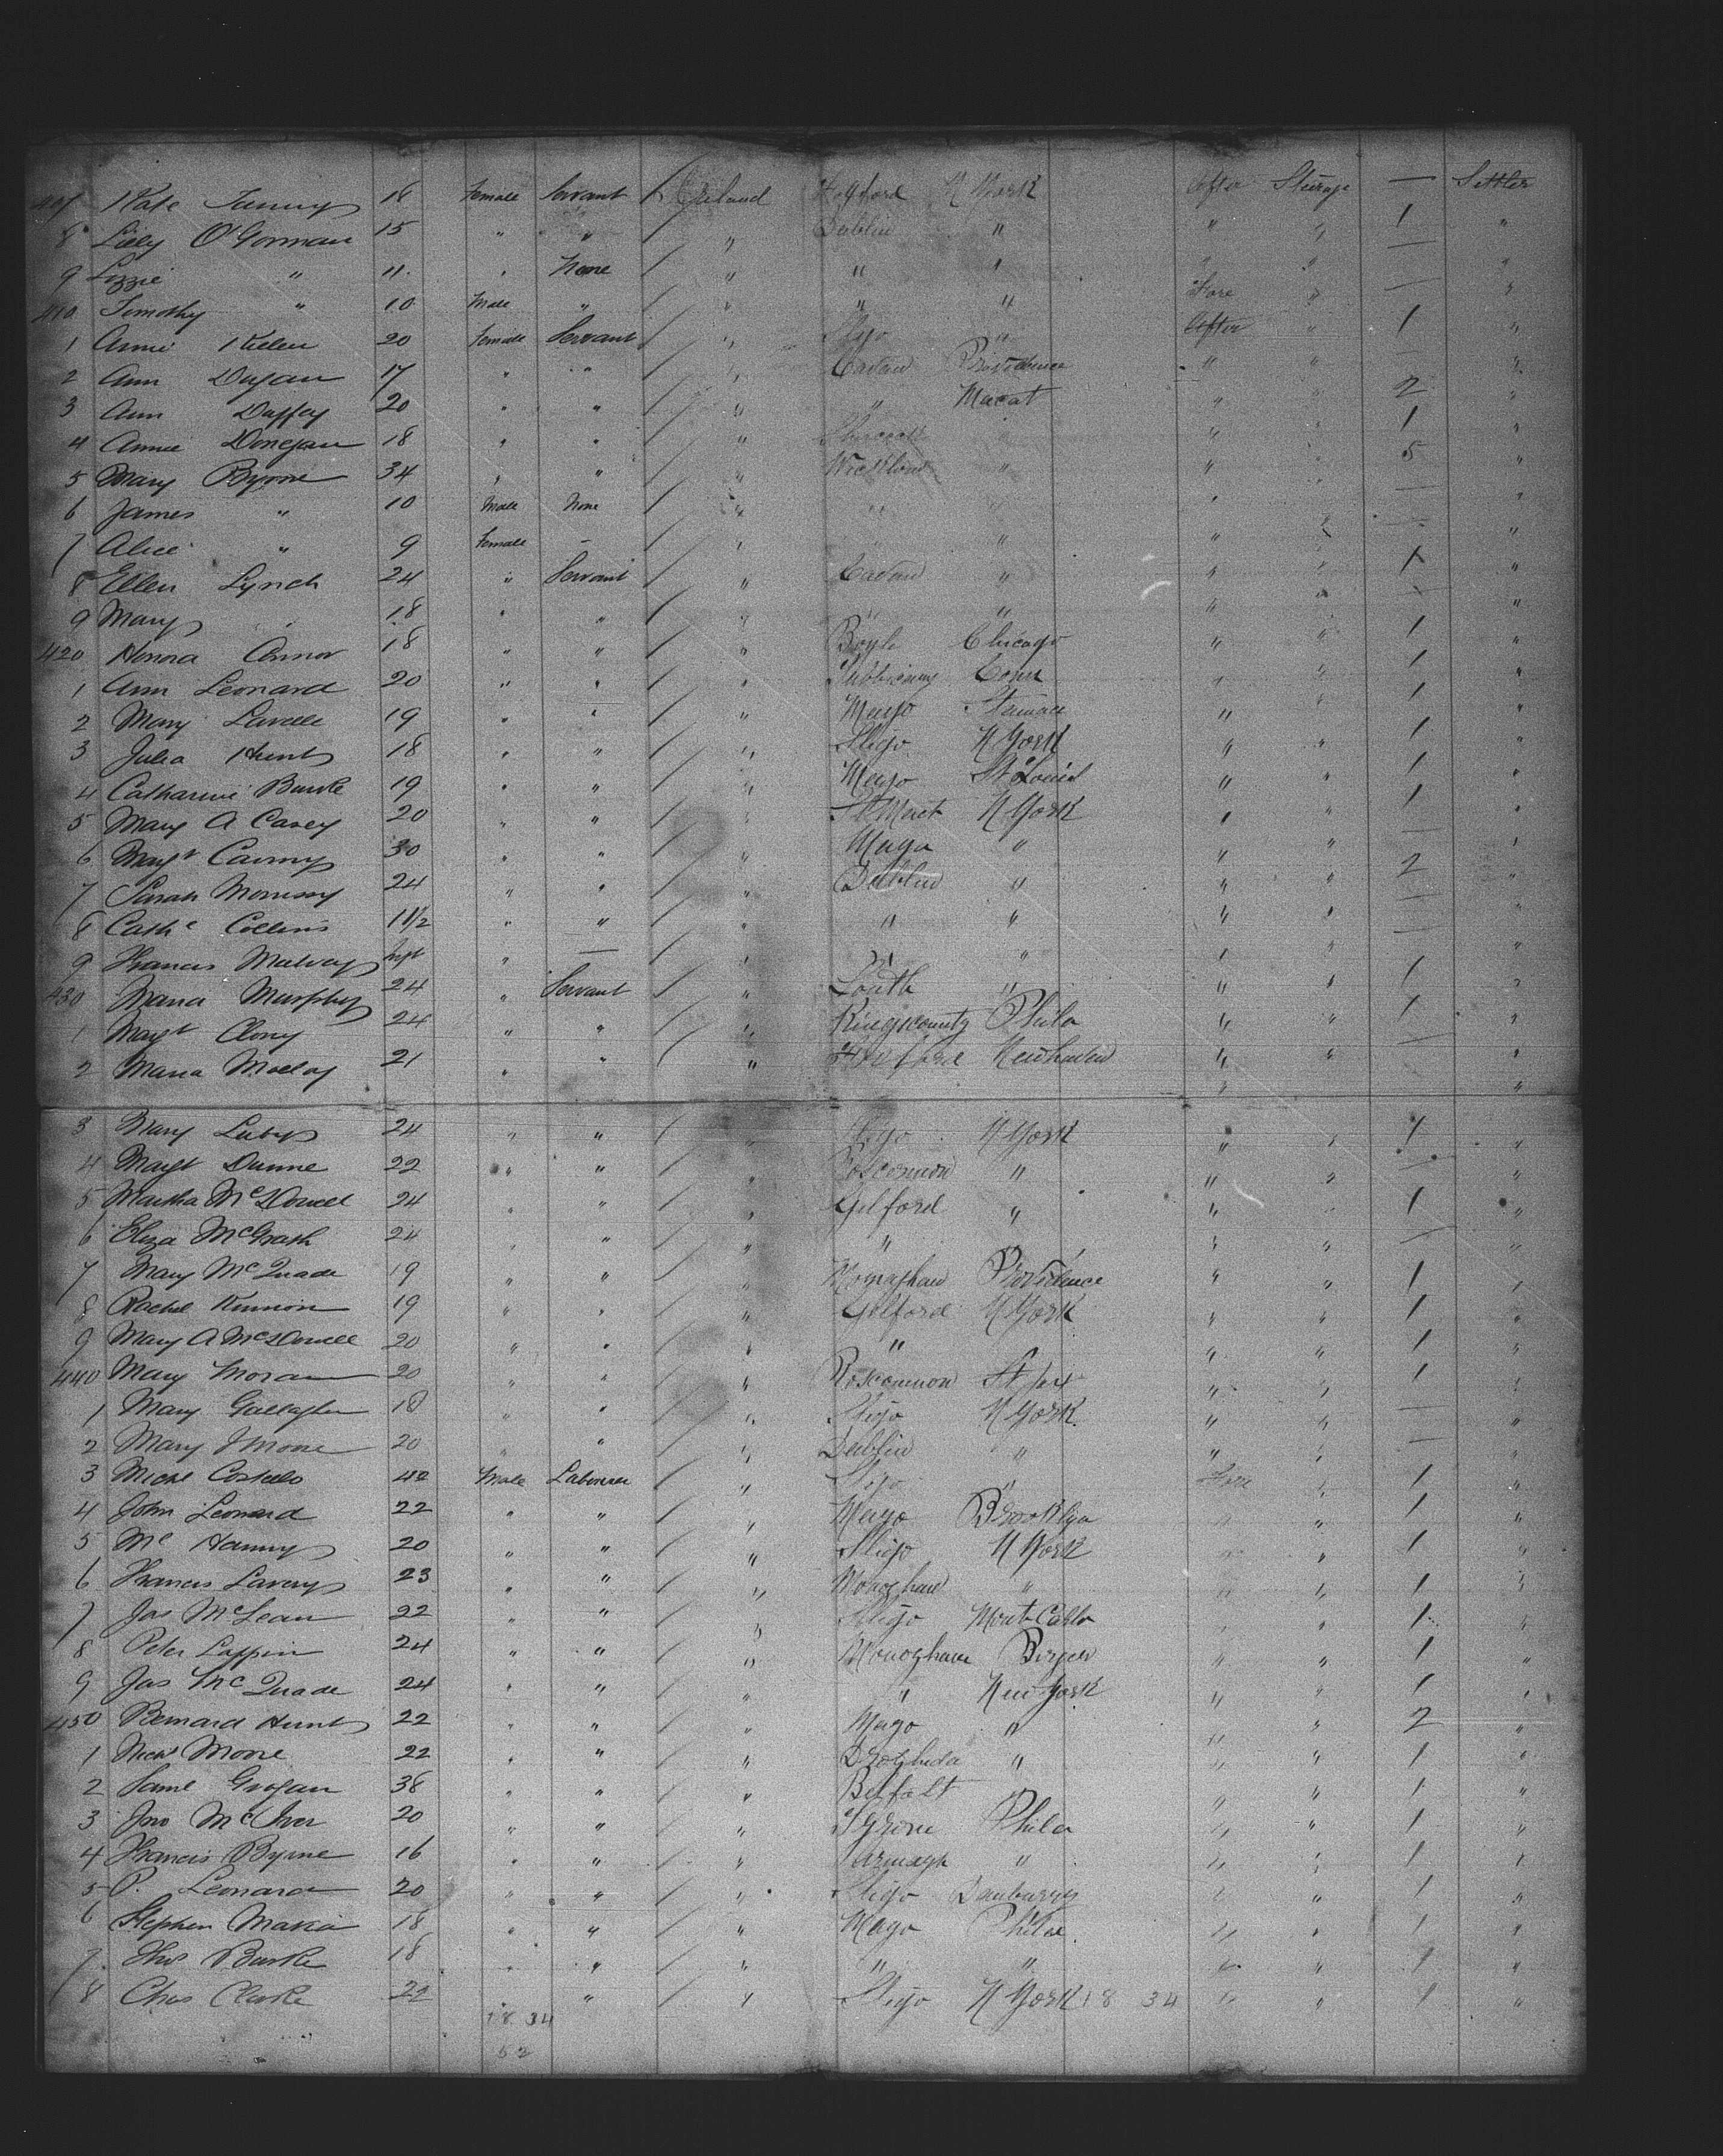 407 Kate 18 Female Servant / Ireland N York After Steerage — Settler
8 Lizy O'Gorman 15 " " / " Dublin " " " 1 "
9 Lizzie " 11 " None / " " " " " — "
410 Timothy " 10 Male " / " " " Fore " — "
1 Annie Killen 20 Female Servant / " Sligo " After " 1 "
2 Ann Dugan 17 " " / " Cavan Providence " " — "
3 Ann Duffy 20 " " / " " " " 2 "
4 Annie Donegan 18 " " / " " " " 1 "
5 Mary Byrne 34 " " / " Wicklow " " " 5 "
6 James " 10 Male None / " " " " " — "
7 Alice " 9 Female — / " " " " " — "
8 Ellen Lynch 24 " Servant / " Cavan " " " 1 "
9 Mary " 18 " " / " " " " " — "
420 Honora Connor 18 " " / " Boyle Chicago " " 1 "
1 Ann Leonard 20 " " / " Conn " " 1 "
2 Mary Lavelle 19 " " / " Mayo " " 1 "
3 Julia Hunt 18 " " / " Sligo N York " " 1 "
4 Catharine Burke 19 " " / " Mayo St Louis " " 1 "
5 Mary A Casey 20 " " / " N York " " 1 "
6 Margt 30 " " / " Mayo " " " — "
7 Sarah Morrissy 24 " " / " Dublin " " " 2 "
8 Cathe Collins 11/2 " " / " " " " " — "
9 Francis Mulvay Inft " — / " " " " " — "
430 Maria Murphy 24 " Servant / " Louth " " " 1 "
1 Margt Clony 24 " " / " Kingscounty Phila " " 1 "
2 Maria Molloy 21 " " / " Newhaven " " — "
3 Mary Luby 24 " " / " Sligo N York " " 1 "
4 Margt Dunne 22 " " / " Roscommon " " " — "
5 Martha McDowell 24 " " / " Gilford " " " 1 "
6 Eliza McGrath 24 " " / " " " " " — "
7 Mary McQuade 19 " " / " Monaghan Providence " " 1 "
8 Rachel Kinnion 19 " " / " Gilford N York " " 1 "
9 Mary A McDowell 20 " " / " " " " 1 "
440 Mary Moran 20 " " / " Roscommon " " 1 "
1 Mary Gallagher 18 " " / " Sligo N York " " — "
2 Mary J Moore 20 " " / " Dublin " " " — "
3 Michl Costello 42 Male Laborer / " Sligo " Fore " 1 "
4 John Leonard 22 " " / " Mayo Brooklyn " " 1 "
5 Mc Hanny 20 " " / " Sligo N York " " 1 "
6 Francis Lavery 23 " " / " Monoghan " " " 1 "
7 Jas McLean 22 " " / " Sligo " " 1 "
8 Peter Lappin 24 " " / " Monoghan Bergen " " 1 "
9 Jas McQuade 24 " " / " " New York " " 1 "
450 Bernard Hunt 22 " " / " Mayo " " " 2 "
1 Nichs Moore 22 " " / " Drogheda " " " 1 "
2 Saml Grogan 38 " " / " Belfast " " 1 "
3 Jno McIver 20 " " / " Tyrone Phila " " 1 "
4 Francis Byrne 16 " " / " Armagh " " " 1 "
5 P. Leonard 20 " " / " Sligo Danburry " " 1 "
6 Stephen 18 " " / " Mayo Phila " " 1 "
7 Thos Burke 18 " " / " " " " " 1 "
8 Chas Clarke 22 " " / " Sligo N York 18 34 " " 1 "
18 34
52